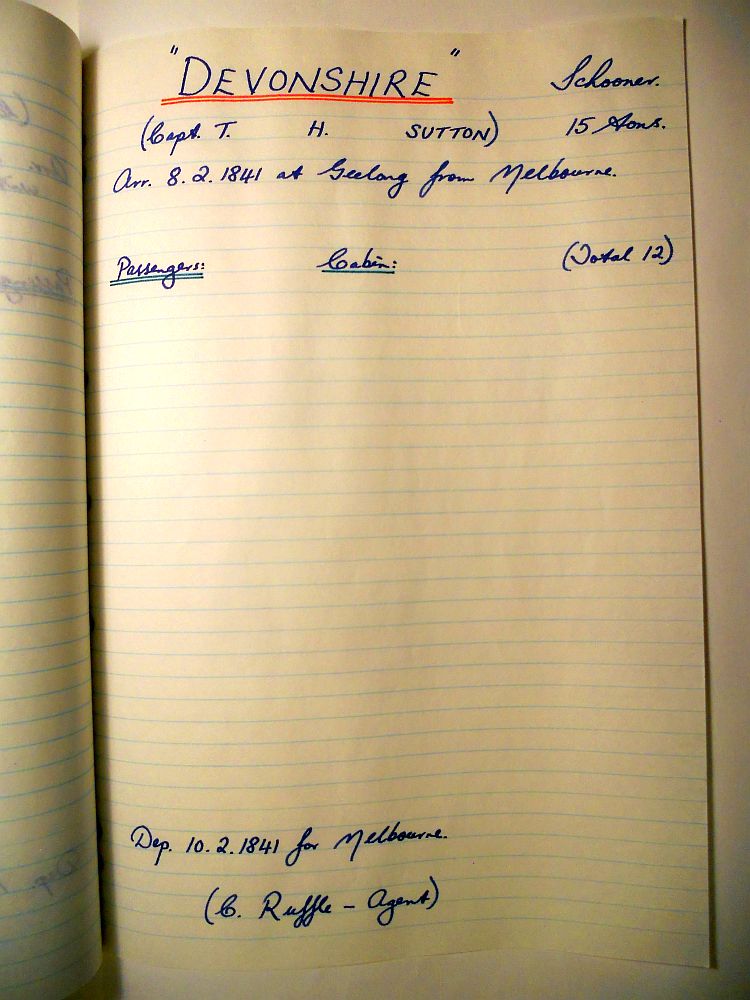 "DEVONSHIRE" Schooner.
(Capt. T. H. SUTTON) 15 tons.
Arr. 8.2.1841 at Geelong from Melbourne.
Passengers: Cabin: (Total 12)
Dep. 10.2.1841 for Melbourne.
(C. Ruffle - Agent)